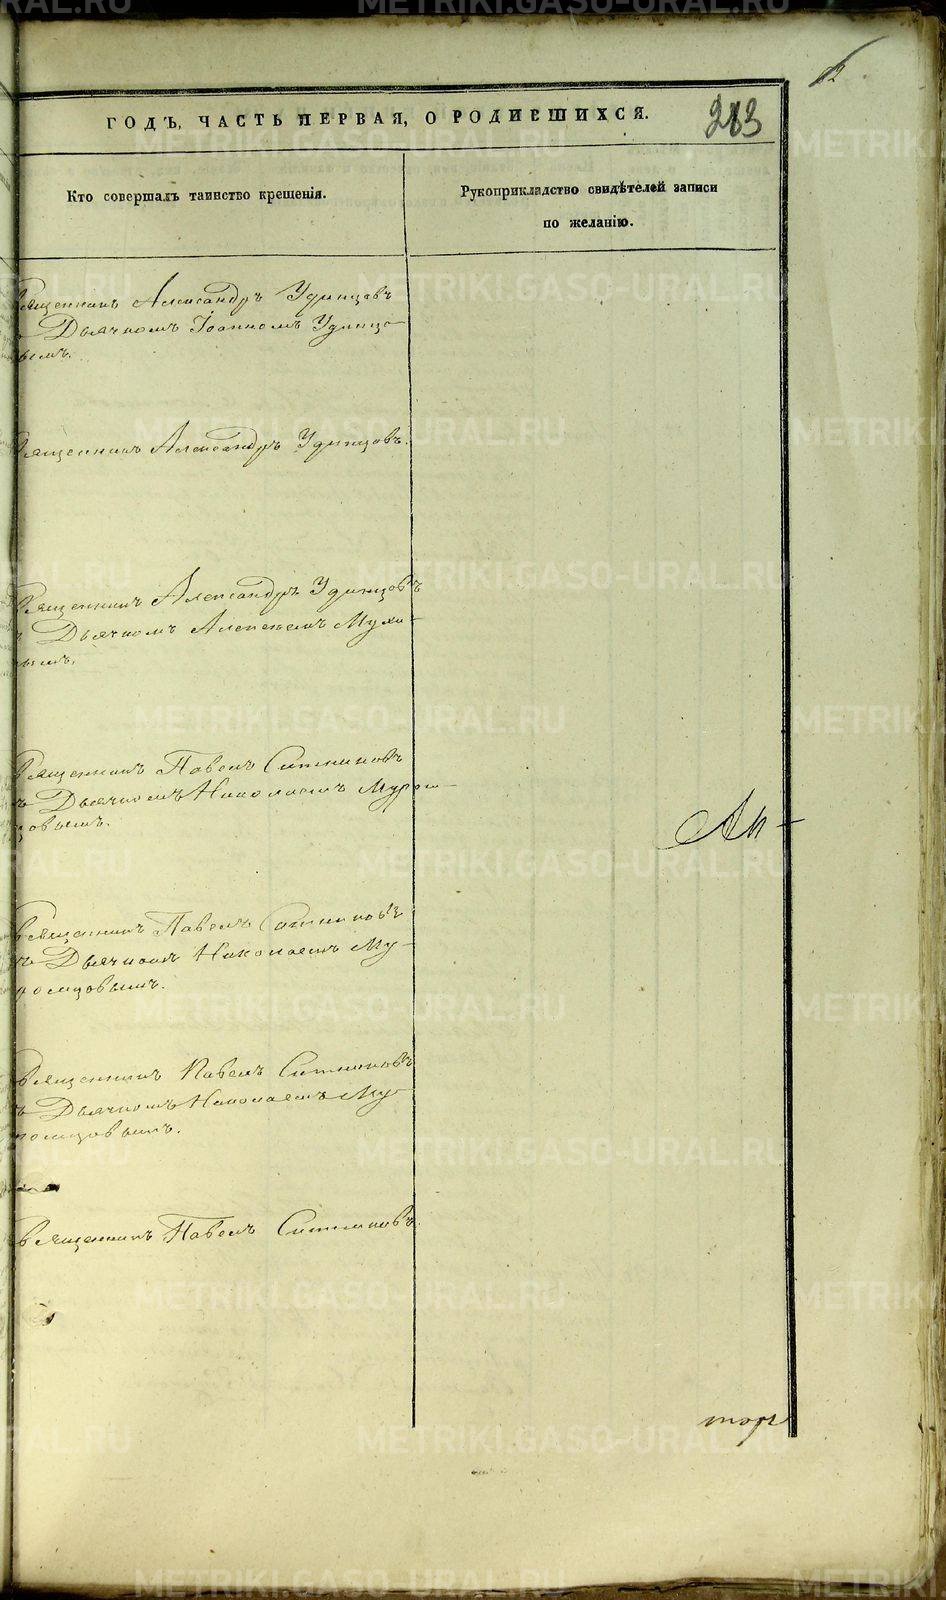 ГОДЪ, ЧАСТЬ ПЕРВАЯ, О РОДИВШИХСЯ.
283
Кто совершалъ таинство крещенія.
Рукоприкладство свидѣтелей записи
по желанію.
Священникъ Александръ Удинцовъ
съ Дьячкомъ Іоанномъ Удинцо-
вымъ.
Священникъ Александръ Удинцовъ.
Священникъ Александръ Удинцовъ
съ Дьячкомъ Алексѣемъ
Священникъ Павелъ Ситниковъ
съ Дьячкомъ Николаемъ
Священникъ Павелъ Ситниковъ
съ Дьячкомъ Николаемъ Му-
Священникъ Павелъ Ситниковъ
съ Дьячкомъ Николаемъ Му-
Священникъ Павелъ Ситниковъ.
METRIKI.GASO-URAL.RU